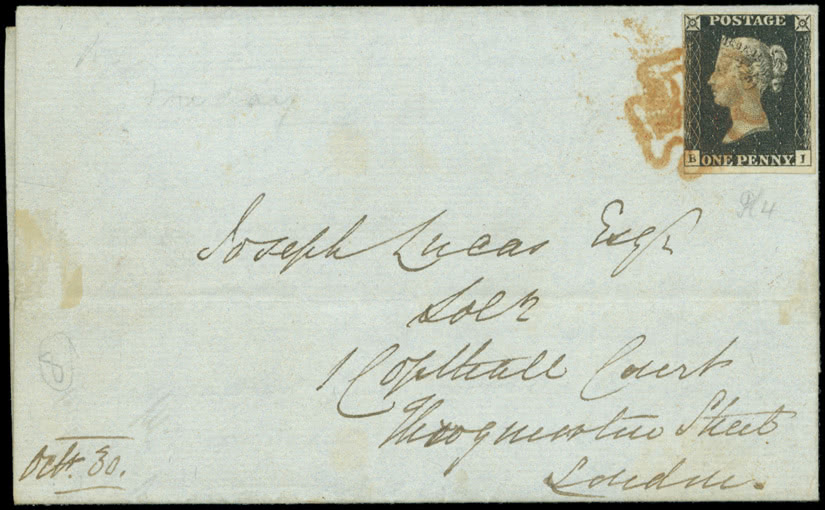 POSTAGE
B ONE PENNY. I
P/4
Joseph Lucas Esqr
Solr
1 Copthall Court
Throgmorton Street
London.
Octr. 30.